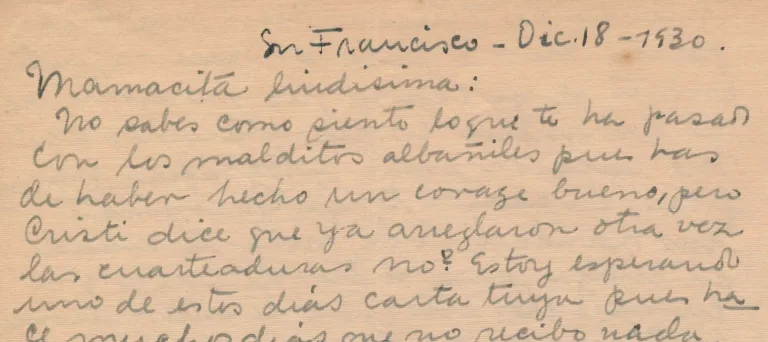 Sn Francisco - Dic. 18 - 1930.
Mamacita lindisima:
No sabes como siento loque te ha pasado
con los malditos albañiles pues has
de haber hecho un corage bueno, pero
Cristi dice que ya arreglaron otra vez
las cuarteaduras no? Estoy esperando
uno de estos días carta tuya pues ha
ce muchos días que no recibo nada.